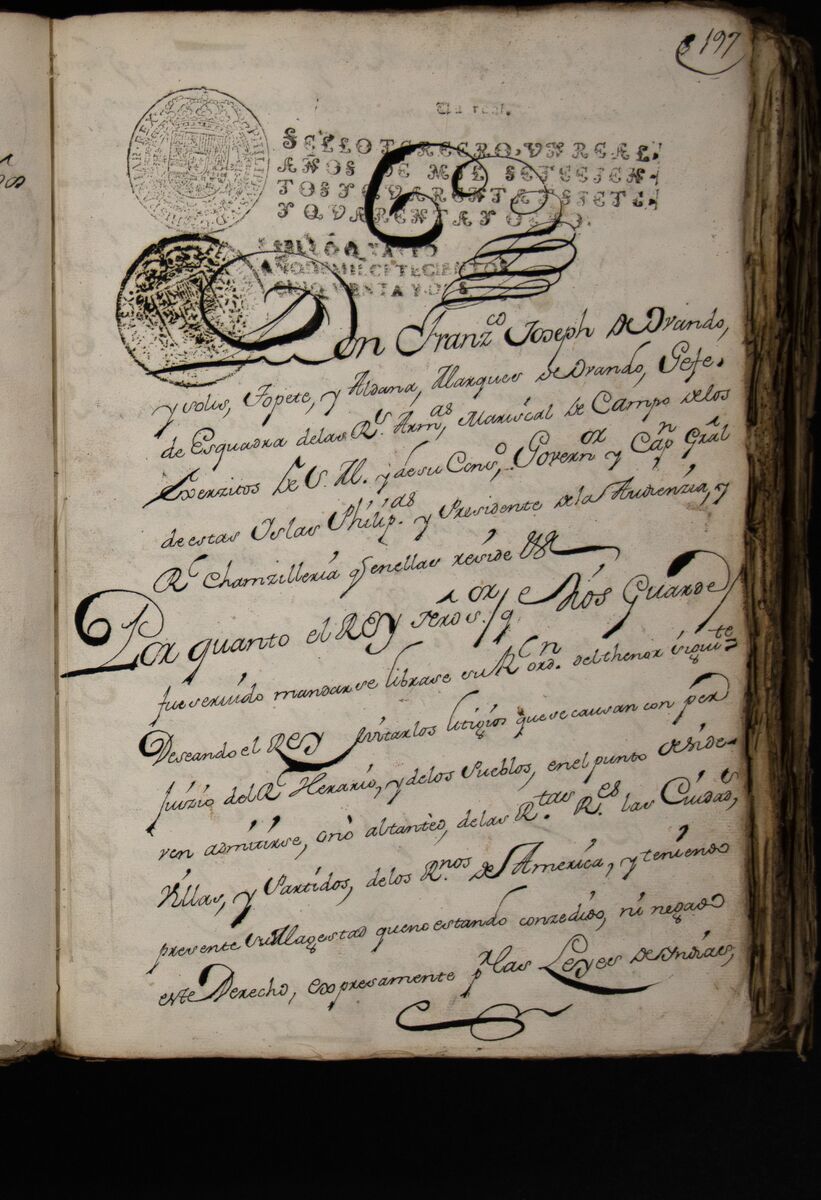 197
Un real.
SELLO TERCERO, VN REAL,
AÑOS DE MIL SETECIEN-
TOS Y QVARENTA Y SIETE,
Y QVARENTA Y OCHO.
SELLO QVARTO
AÑO DE MIL CETECIENTOS
CINQVENTA Y DOS
PHILIPPVS V D G HISPANIAR REX
Don Franz.co Joseph de Ovando,
y solis, Topete, y Aldana, Marques de Ovando, Gefe
de Esquadra de las R.s Arm.as, Mariscal de Campo de los
Exerzitos de S. M. y de su Cons.o, Govern.or y Cap.n Grâl
de estas Yslas Philip.as y Presidente de la Audienzia, y
R.l Chanzilleria q̃ en ellas reside &a
Por quanto el REY ñrõ s.or /q.e Dios Guarde/
fue seruido mandar se librase su R.l ord.n del thenor siguite=
Deseando el REY evitar los litigios que se causan con per
juizio del R.l Herario, y de los Pueblos, en el punto de si de-
ven admitirse, o no al tantèo, de las R.tas R.es las Ciudad.s,
Villas, y Partidos, de los R.nos de America, y teniendo
presente su Magestad que no estando conzedido, ni negado
este Derecho, expresamente p.r las Leyes de Yndias,